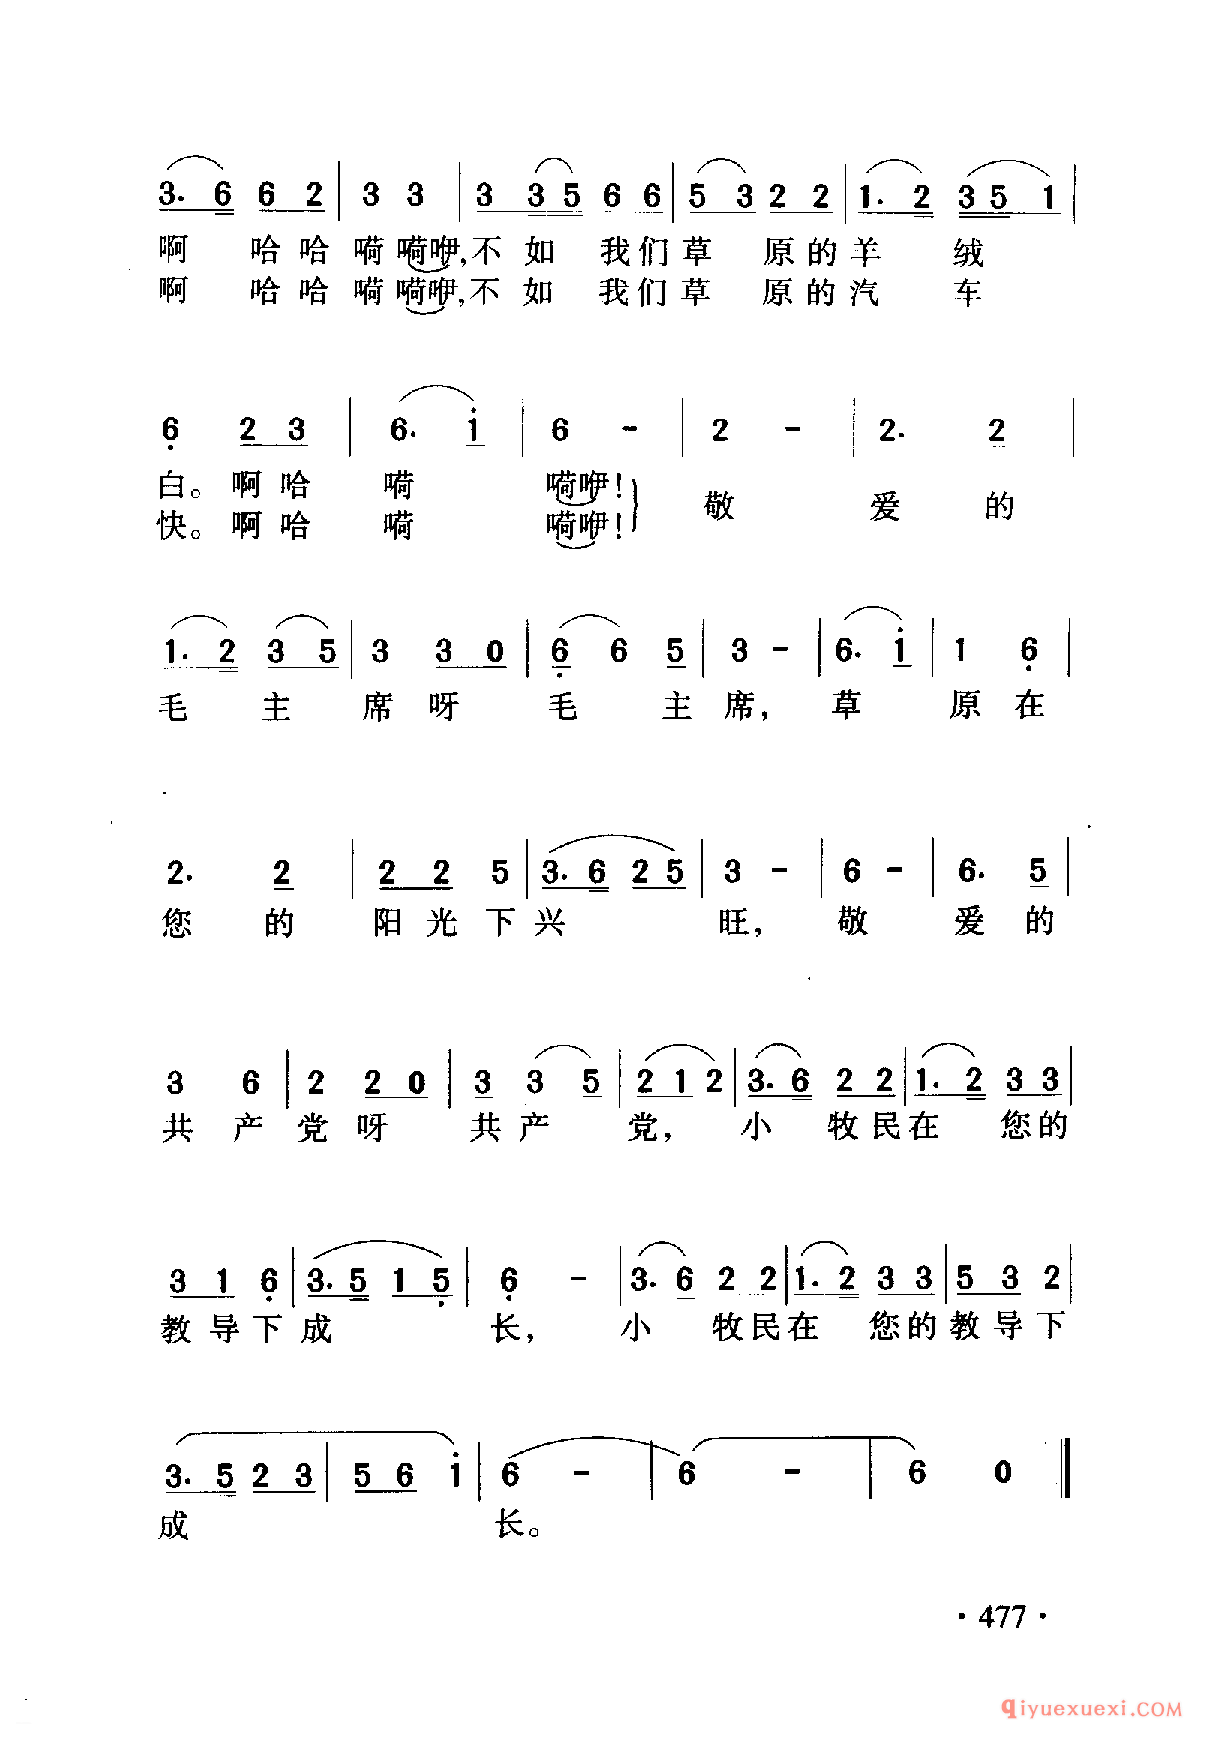 3. 6 6 2 | 3 3 | 3 3 5 6 6 | 5 3 2 2 | 1. 2 3 5 1 |
啊 哈哈嗬嗬咿,不如 我们草 原的羊 绒
啊 哈哈嗬嗬咿,不如 我们草 原的汽 车
6 2 3 | 6. i | 6 - | 2 - | 2. 2 |
白。啊哈 嗬 嗬咿! 敬 爱 的
快。啊哈 嗬 嗬咿!
1. 2 3 5 | 3 3 0 | 6 6 5 | 3 - | 6. i | 1 6 |
毛 主 席 呀 毛 主 席, 草 原 在
2. 2 | 2 2 5 | 3. 6 2 5 | 3 - | 6 - | 6. 5 |
您 的 阳 光 下 兴 旺, 敬 爱 的
3 6 | 2 2 0 | 3 3 5 | 2 1 2 | 3. 6 2 2 | 1. 2 3 3 |
共 产 党 呀 共 产 党, 小 牧民在 您的
3 1 6 | 3. 5 1 5 | 6 - | 3. 6 2 2 | 1. 2 3 3 | 5 3 2 |
教导下成 长, 小 牧民在 您的教导下
3. 5 2 3 | 5 6 i | 6 - | 6 - | 6 0 ‖
成 长。
· 477 ·
qiyuexuexi.COM